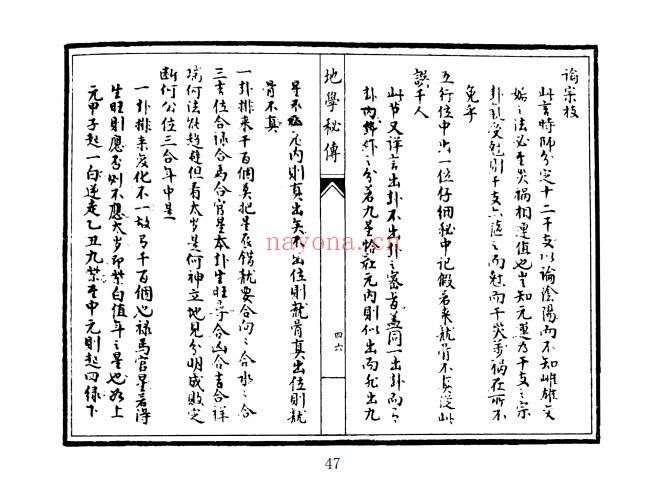 論宗枝
此言時師分定十二干支以論陰陽而不知雌雄交
媾之法必至災禍相連值也豈知元運為干支之宗
卦氣受尅則干支亦隨之而尅而干災萬禍在所不
免乎
五行位中出一位仔細秘中記假若來龍骨不真從此
誤千人
此节又详言出卦不出卦之審旨盖同一出卦而有
卦內卦外之分若九星於在元內則似出而死出九
地學秘傳
四六
星不在元內則真出矣不出位則龍骨真出位則龍
骨不真
一卦排來千百個莫把星辰錯龍要合向向合水水合
三吉位合祿合馬合官星本卦生旺尋合凶合吉合祥
瑞何法能趨避但看太岁是何神立地見分明成敗定
断何公位三合年中是
一卦排來变化不一故有千百個也祿馬官星若得
生旺則應否則不應太岁即紫白值年之星也如上
元甲子起一白逆走乙丑九紫至中元則起四緑下
nayona.cn
47